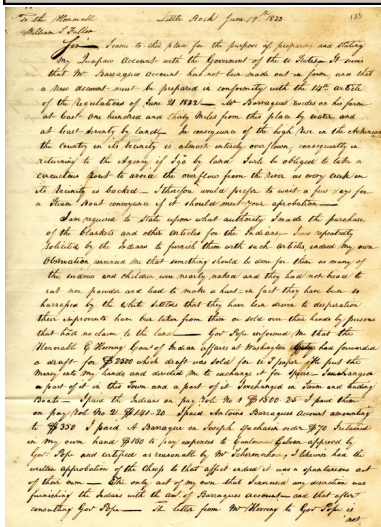 To the Honorable Little Rock June 19th 1833
William S Fulton
Sir I came to this place for the purpose of preparing and stating
My Quapaw Account with the Government of the U States It seems
that Mr Barraques account had not been made out in form, and that
a new account must be prepared in conformity with the 14th article
of the Regulations of June 21 1832 Mr Barraque resides on his farm
at least one hundred and thirty miles from this place by water and
at least seventy by land In consequence of the high rise in the Arkansas
the country in its vicinity is almost entirely overflown, consequently in
returning to the Agency if I go by land I will be obliged to take a
circuitous rout to avoid the overflow from the river as every creek in
its vicinity is backed I therefore would prefer to wait a few days for
a Steam Boat conveyance if it should meet your approbation
I am required to State upon what authority I made the purchase
of the blankets and other articles for the Indians I was repeatedly
solicited by the Indians to furnish them with such articles, indeed my own
Observation convinced me that something should be done for them as many of
the women and children were nearly naked and they had not bread to
eat nor powder and lead to make a hunt in fact they have been so
harrassed by the White Settlers that they have been driven to desperation
their improvements have been taken from them or sold over their heads by persons
that had no claim to the land Gov Pope informed me that the
Honorable E Herring Comr of Indian affairs at Washington City had forwarded
a draft for $2500 which draft was sold for U S paper He put the
money into my hands and directed me to exchange it for Specie I exchanged
a part of it in this Town and a part of it I exchanged in Town and
Banks I paid the Indians on pay Roll No 1 $1500.25 I paid them
on pay Roll No 2 $441.20 I paid Antoine Barraques account amounting
to $350 I paid A Barraque on Joseph order $70 I retained
in my own hand $150 to pay expences to Gibson approved by
Gov Pope and certified as reasonable by Mr Schermerhorn, I likewise had the
written approbation of the Chiefs to that effect indeed it was a spontaneous act
of their own The only act of my own that I exercised any discretion was
furnishing the Indians with the amt of Barraques account and that after
consulting Gov Pope The letter from Mr Herring to Gov Pope is
not